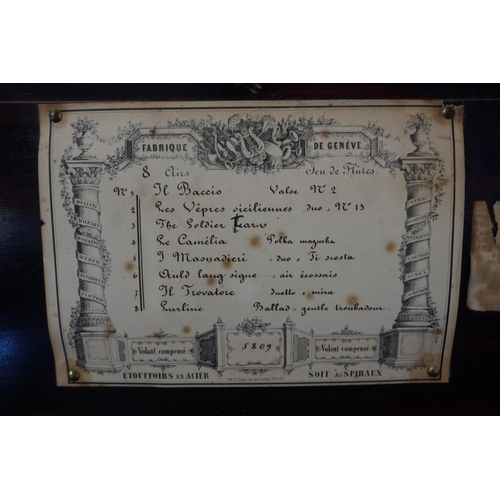 FABRIQUE DE GENÈVE
8 Airs Jeu de Flûtes.
Nº 1 Il Baccio Valse Nº 2
2 Les Vêpres siciliennes duo, Nº 13
3 The Soldier tear
4 Le Camélia Polka mazurka
5 I Masnadieri duo, Ti scosta
6 Auld lang signe air écossais
7 Il Trovatore duetto, mira
8 Lurline Ballad gentle troubadour
BELLINI
MOZART
ROSSINI
WEBER
FLOTOW
VERDI
STRAUSS
Volant compensé
5809
Volant compensé
ÉTOUFFOIRS EN ACIER
SOIT À SPIRAUX